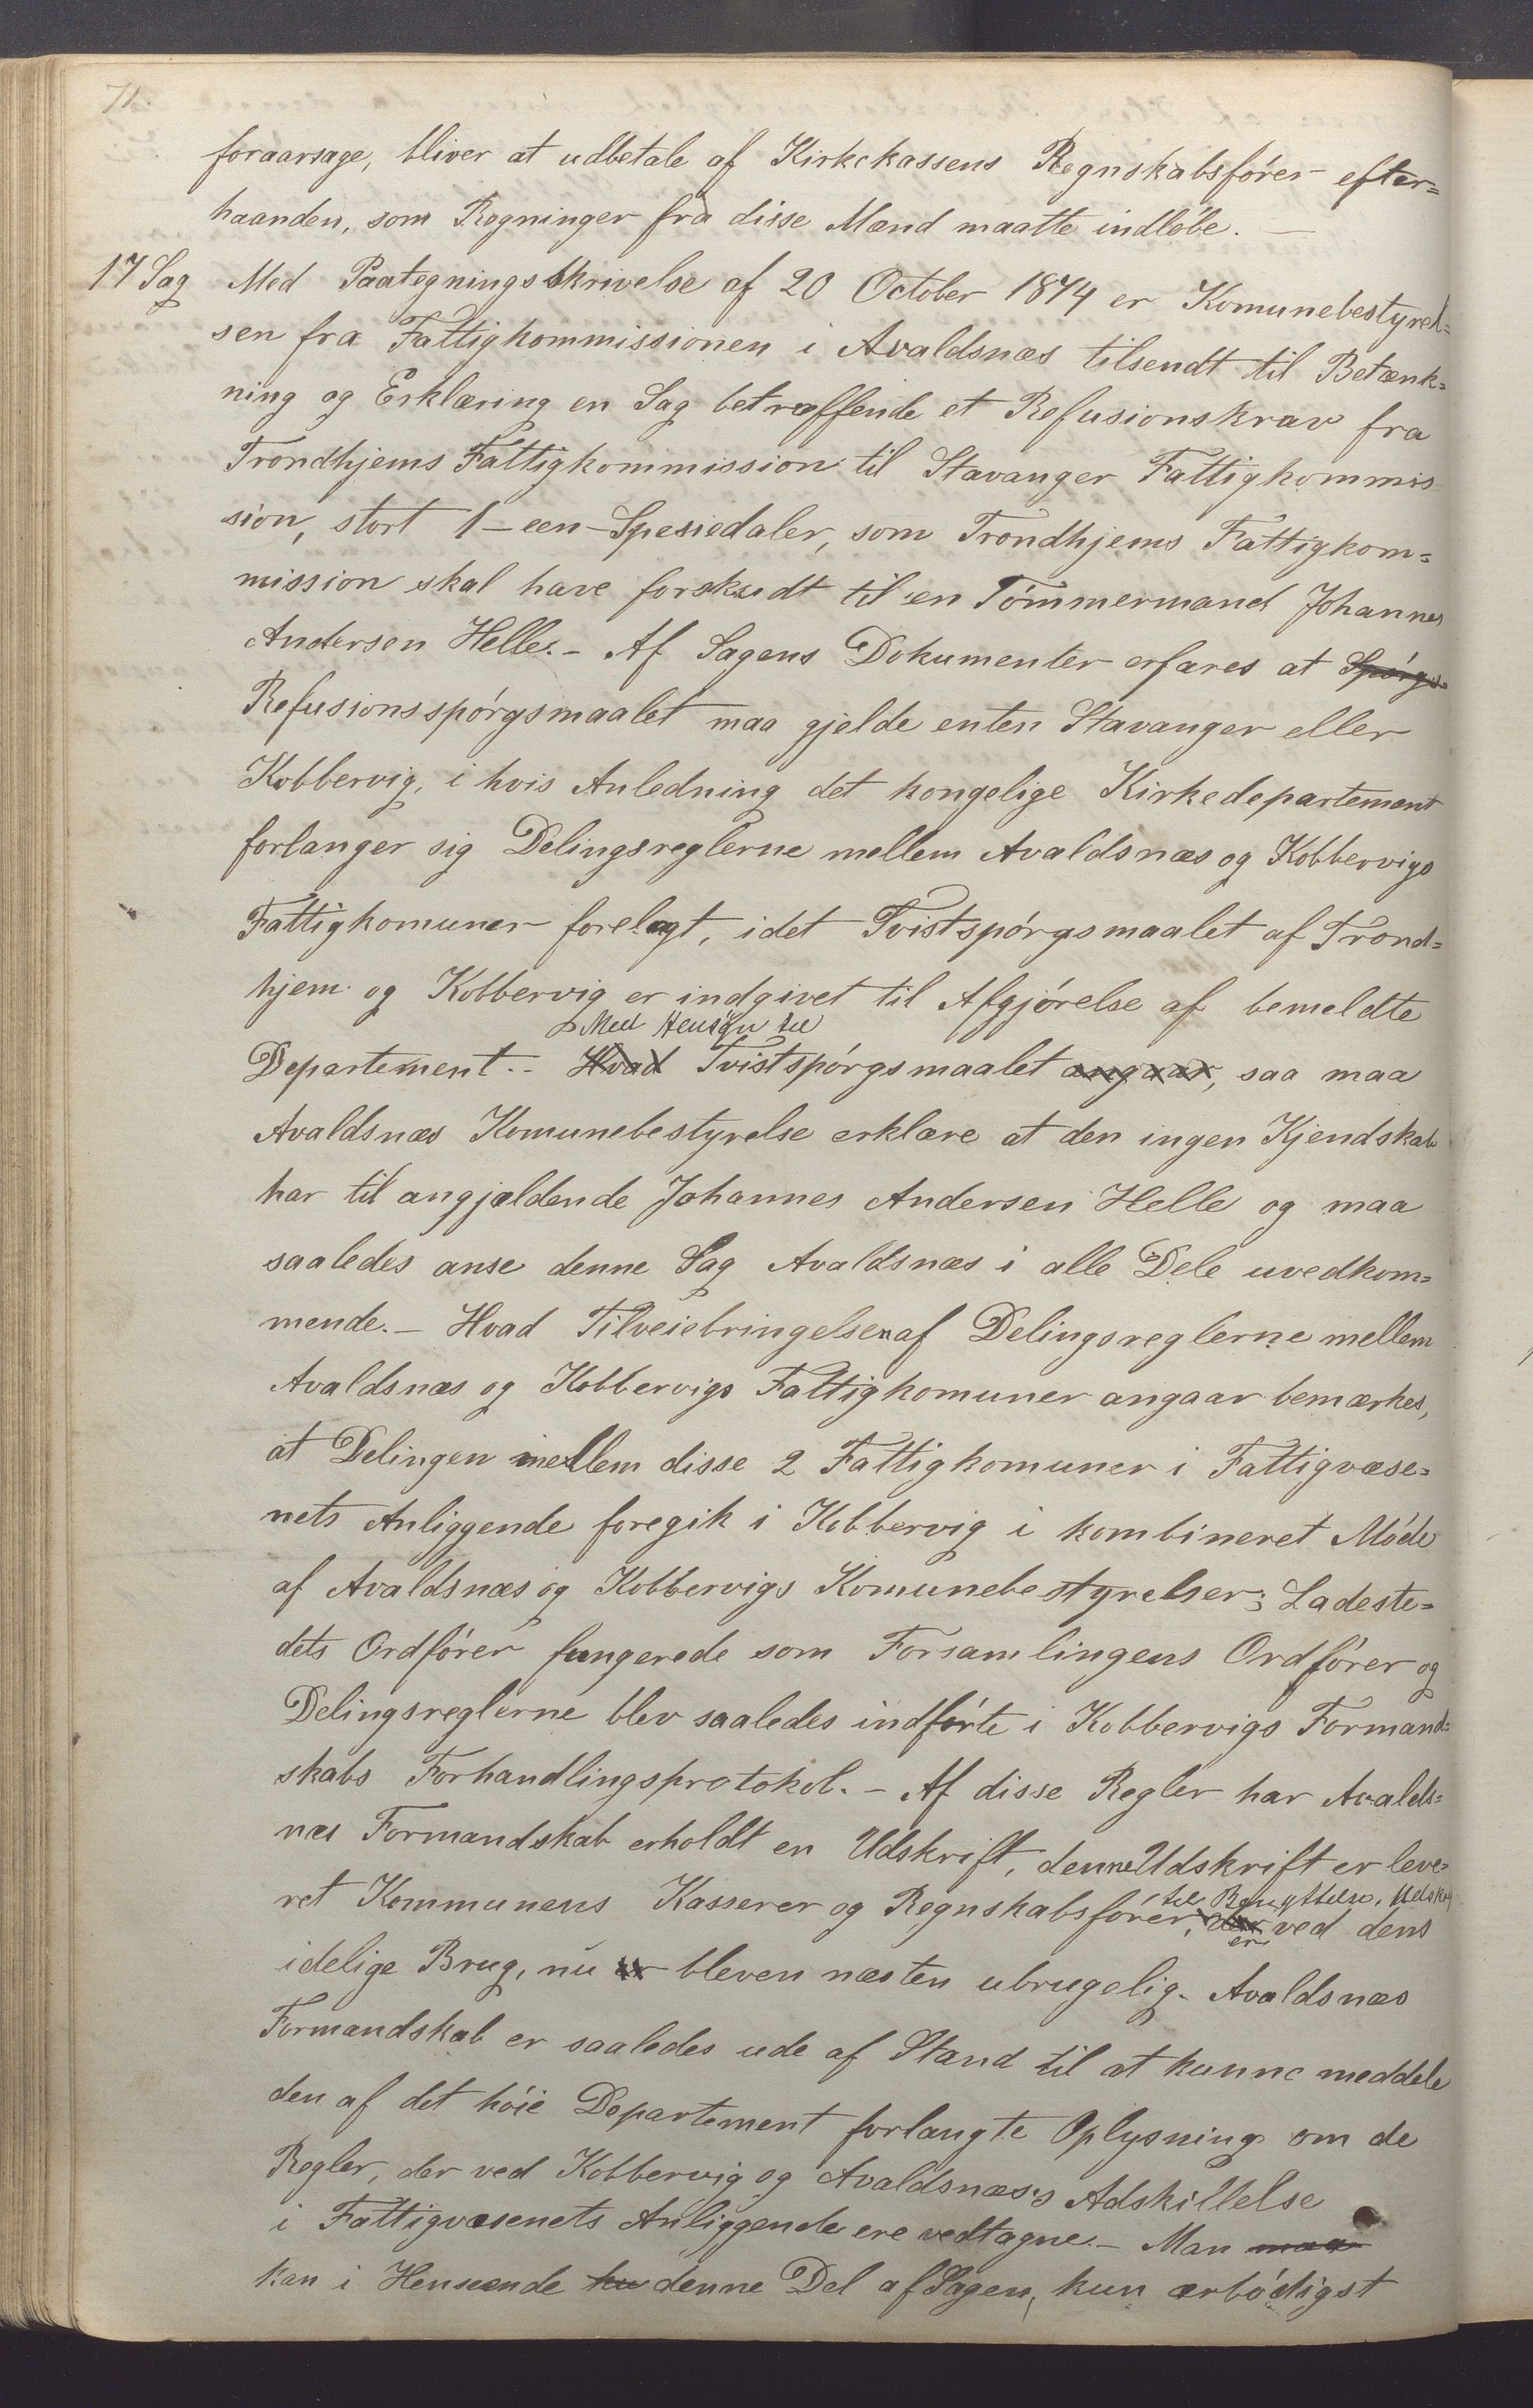 71.
foraarsage, bliver at udbetale af Kirkekassens Regnskabsfører efter=
haanden, som Regninger fra disse Mænd maatte indløbe. —
17 Sag Med Paategningsskrivelse af 20 October 1874 er Komunebestyrel=
sen fra Fattigkommissionen i Avaldsnæs tilsendt til Betænk=
ning og Erklæring en Sag betræffende et Refusionskrav fra
Trondhjems Fattigkommission til Stavanger Fattigkommis
sion, stort 1 – een – Spesiedaler, som Trondhjems Fattigkom=
mission skal have forskudt til en Tømmermand Johannes
Andersen Helle. – Af Sagens Dokumenter erfares at Spørgs=
Refusionsspørgsmaalet maa gjelde enten Stavanger eller
Kobbervig, i hvis Anledning det kongelige Kirkedepartement
forlanger sig Delingsreglerne mellem Avaldsnæs og Kobbervigs
Fattigkomuner forelagt, idet Tvistspørgsmaalet af Trond=
hjem og Kobbervig er indgivet til Afgjørelse af bemeldte
Med Hensyn til
Departement. – Hvad Tvistspørgsmaalet angaar, saa maa
Avaldsnæs Komunebestyrelse erklære at den ingen Kjendskab
har til angjældende Johannes Andersen Helle og maa
saaledes anse denne Sag Avaldsnæs i alle Dele uvedkom=
mende. – Hvad Tilveiebringelsen af Delingsreglerne mellem
Avaldsnæs og Kobbervigs Fattigkomuner angaar bemærkes,
at Delingen mellem disse 2 Fattigkomuner i Fattigvæse=
nets Anliggende foregik i Kobbervig i kombineret Møde
af Avaldsnæs og Kobbervigs Komunebestyrelser; Ladeste=
dets Ordfører fungerede som Forsamlingens Ordfører og
Delingsreglerne blev saaledes indførte i Kobbervigs Formand=
skabs Forhandlingsprotokol. – Af disse Regler har Avalds=
næs Formandskab erholdt en Udskrift, denne Udskrift er leve=
til Benyttelse,
ret Kommunens Kasserer og Regnskabsfører, der ved dens
er
idelige Brug, nu er bleven næsten ubrugelig. Avaldsnæs
Formandskab er saaledes ude af Stand til at kunne meddele
den af det høie Departement forlangte Oplysning om de
Regler, der ved Kobbervig og Avaldsnæs's Adskillelse
i Fattigvæsenets Anliggende ere vedtagne. – Man maa
kan i Henseende denne Del af Sagen, kun ærbødigst